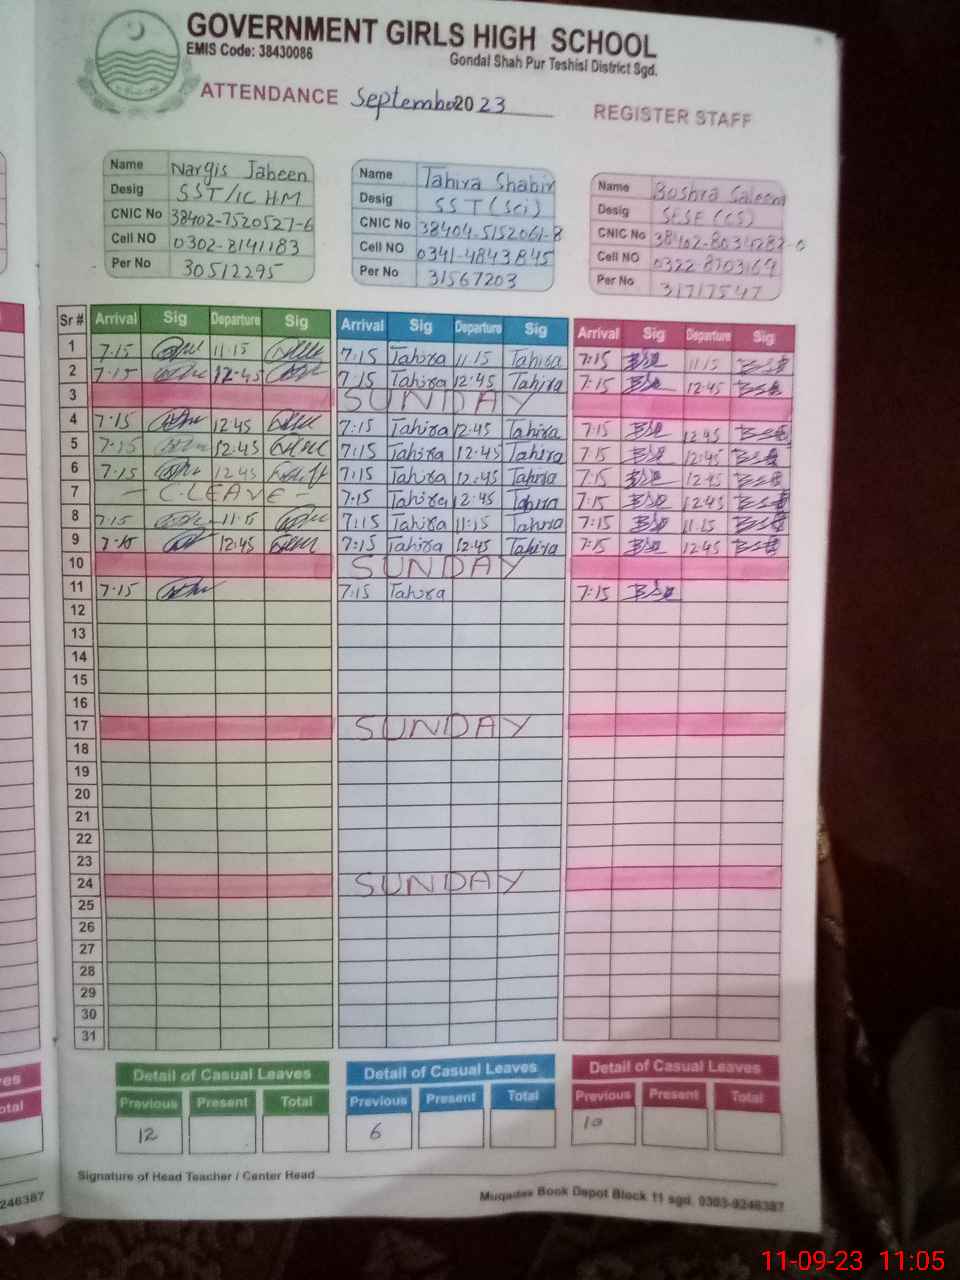 GOVERNMENT GIRLS HIGH SCHOOL
EMIS Code: 38430086
Gondal Shah Pur Teshisl District Sgd.
ATTENDANCE September 2023 REGISTER STAFF
Name Nargis Jabeen Name Tahira Shabir Name Boshra Saleem
Desig SST/IC HM Desig SST (Sci) Desig SESE (CS)
CNIC No 38402-7520527-6 CNIC No 38404-5152061-8 CNIC No 38402-8034282-0
Cell NO 0302-8141183 Cell NO 0341-4843845 Cell NO 0322 8703169
Per No 30512295 Per No 31567203 Per No 31717547
Sr # Arrival Sig Departure Sig Arrival Sig Departure Sig Arrival Sig Departure Sig
1 7:15 11:15 7:15 Tahira 11:15 Tahira 7:15 11:15
2 7:15 12:45 7:15 Tahira 12:45 Tahira 7:15 12:45
3 SUNDAY
4 7:15 12:45 7:15 Tahira 12:45 Tahira 7:15 12:45
5 7:15 12:45 7:15 Tahira 12:45 Tahira 7:15 12:45
6 7:15 12:45 7:15 Tahira 12:45 Tahira 7:15 12:45
7 - C.LEAVE - 7:15 Tahira 12:45 Tahira 7:15 12:45
8 7:15 11:15 7:15 Tahira 11:15 Tahira 7:15 11:15
9 7:15 12:45 7:15 Tahira 12:45 Tahira 7:15 12:45
10 SUNDAY
11 7:15 7:15 Tahira 7:15
12
13
14
15
16
17 SUNDAY
18
19
20
21
22
23
24 SUNDAY
25
26
27
28
29
30
31
Detail of Casual Leaves Detail of Casual Leaves Detail of Casual Leaves
Previous Present Total Previous Present Total Previous Present Total
12 6 10
Signature of Head Teacher / Center Head
Muqadas Book Depot Block 11 sgd. 0303-9246387
otal
9246387
11-09-23 11:05